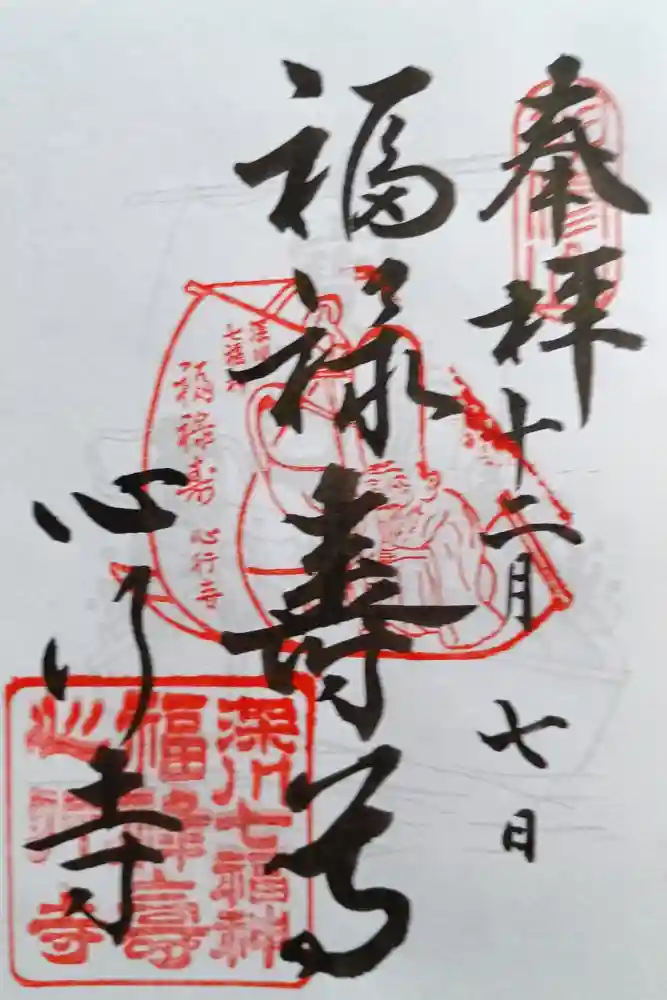 奉拝
十二月七日
福禄寿尊
心行寺
七福神
福禄寿
心行寺
深川七福神
福禄寿
心行寺